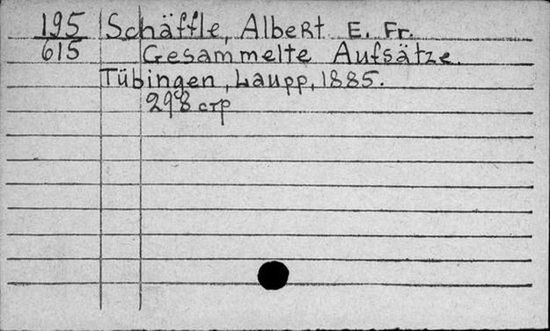 195 Schäffle, Albert E. Fr.
615 Gesammelte Aufsätze.
Tübingen, Laupp, 1885.
298 стр